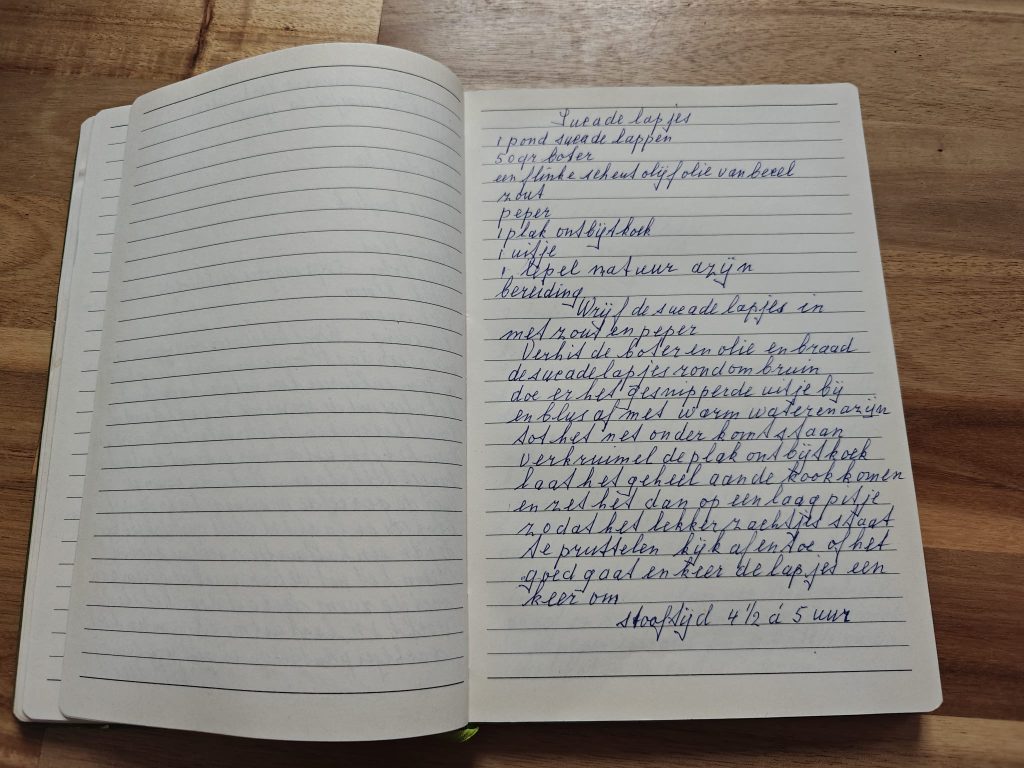 Sucade lapjes
1 pond sucade lappen
50 gr boter
een flinke scheut olijfolie van becel
zout
peper
1 plak ontbijtkoek
1 uitje
1 lepel natuur azijn
bereiding
Wrijf de sucade lapjes in
met zout en peper
Verhit de boter en olie en braad
de sucadelapjes rondom bruin
doe er het gesnipperde uitje bij
en blus af met warm water en azijn
tot het net onder komt staan
verkruimel de plak ontbijtkoek
laat het geheel aan de kook komen
en zet het dan op een laag pitje
zodat het lekker zachtjes staat
te pruttelen kijk af en toe of het
goed gaat en keer de lapjes een
keer om
stooftijd 4 1/2 á 5 uur